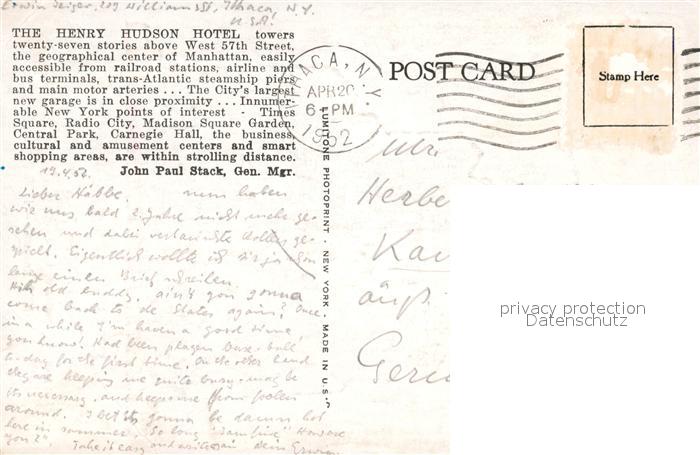 Erwin Geiger, 209 Williams St, Ithaca, N.Y.
U.S.A!
THE HENRY HUDSON HOTEL towers
twenty-seven stories above West 57th Street,
the geographical center of Manhattan, easily
accessible from railroad stations, airline and
bus terminals, trans-Atlantic steamship piers
and main motor arteries ... The City's largest
new garage is in close proximity ... Innumer-
able New York points of interest - Times
Square, Radio City, Madison Square Garden,
Central Park, Carnegie Hall, the business,
cultural and amusement centers and smart
shopping areas, are within strolling distance.
John Paul Stack, Gen. Mgr.
19.4.52.
Lieber nun haben
wir uns bald 2 Jahre nicht mehr ge-
sehen und dabei
Eigentlich wollte ich dir ja schon
lange einen Brief schreiben.
old buddy, ain't you gonna
come back to de States again? Once
in a while I'm haven a good time
you know! Had been playen base-ball
to-day for the first time. On the other hand
keeping me quite busy, may be
its necessary, and keeps me from foolen
around. I bet its gonna be damn hot
here in summer. So long
you?" Take it easy and write dein Erwin
LUMITONE PHOTOPRINT · NEW YORK · MADE IN U.S.
ITHACA, N.Y.
APR 20
6 PM
1952
POST CARD
Stamp Here
Germ
privacy protection
Datenschutz